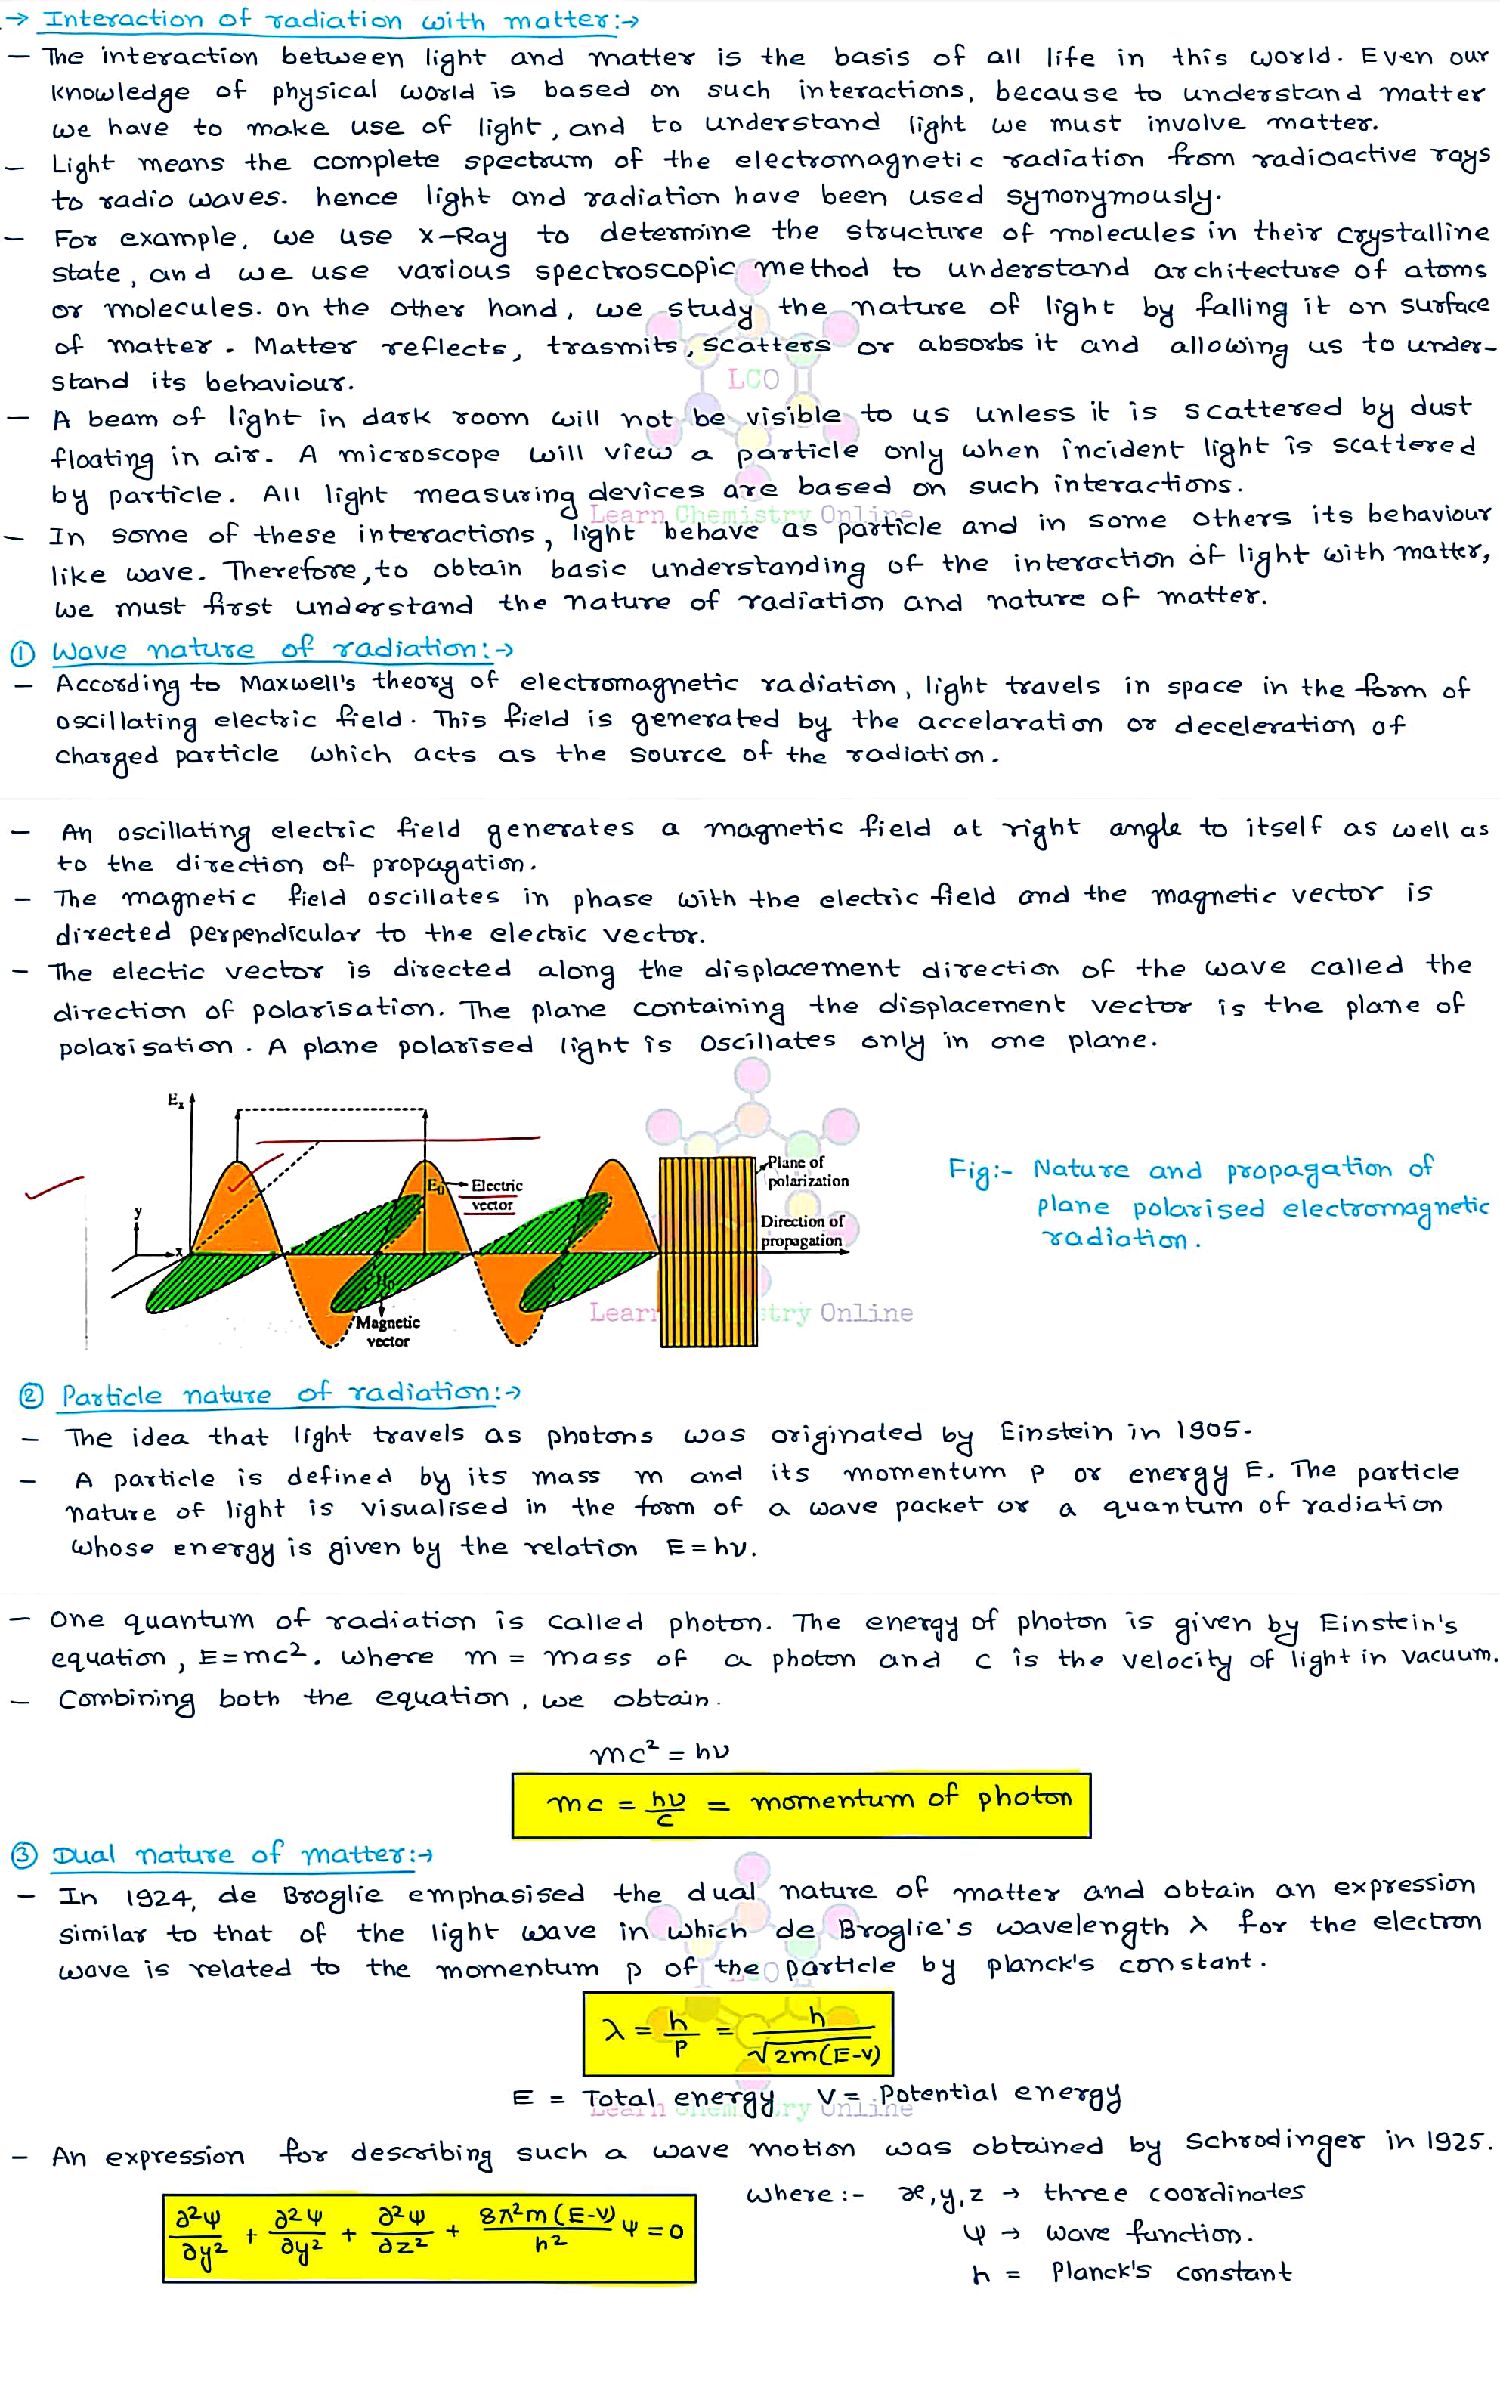 → Interaction of radiation with matter:→
– The interaction between light and matter is the basis of all life in this world. Even our
knowledge of physical world is based on such interactions, because to understand matter
we have to make use of light, and to understand light we must involve matter.
– Light means the complete spectrum of the electromagnetic radiation from radioactive rays
to radio waves. hence light and radiation have been used synonymously.
– For example, we use X-Ray to determine the structure of molecules in their crystalline
state, and we use various spectroscopic method to understand architecture of atoms
or molecules. on the other hand, we study the nature of light by falling it on surface
of matter. Matter reflects, trasmits, scatters or absorbs it and allowing us to under-
stand its behaviour.
LCO
– A beam of light in dark room will not be visible to us unless it is scattered by dust
floating in air. A microscope will view a particle only when incident light is scattered
by particle. All light measuring devices are based on such interactions.
Learn Chemistry Online
– In some of these interactions, light behave as particle and in some others its behaviour
like wave. Therefore, to obtain basic understanding of the interaction of light with matter,
we must first understand the nature of radiation and nature of matter.
① Wave nature of radiation:→
– According to Maxwell's theory of electromagnetic radiation, light travels in space in the form of
oscillating electric field. This field is generated by the accelaration or deceleration of
charged particle which acts as the source of the radiation.
– An oscillating electric field generates a magnetic field at right angle to itself as well as
to the direction of propagation.
– The magnetic field oscillates in phase with the electric field and the magnetic vector is
directed perpendicular to the electric vector.
– The electic vector is directed along the displacement direction of the wave called the
direction of polarisation. The plane containing the displacement vector is the plane of
polarisation. A plane polarised light is oscillates only in one plane.
E
Plane of
polarization
E₀ Electric
vector
y
x
Direction of
propagation
H₀
Magnetic
vector
Fig:- Nature and propagation of
plane polarised electromagnetic
radiation.
Learn Chemistry Online
② Particle nature of radiation:→
– The idea that light travels as photons was originated by Einstein in 1905.
– A particle is defined by its mass m and its momentum p or energy E. The particle
nature of light is visualised in the form of a wave packet or a quantum of radiation
whose energy is given by the relation E=hν.
– One quantum of radiation is called photon. The energy of photon is given by Einstein's
equation, E=mc². where m = mass of a photon and c is the velocity of light in vacuum.
– Combining both the equation, we obtain.
mc² = hν
mc = hν/c = momentum of photon
③ Dual nature of matter:→
– In 1924, de Broglie emphasised the dual nature of matter and obtain an expression
similar to that of the light wave in which de Broglie's wavelength λ for the electron
wave is related to the momentum p of the particle by planck's constant.
LCO
λ = h/p = h/√2m(E-V)
E = Total energy V = Potential energy
Learn Chemistry Online
– An expression for describing such a wave motion was obtained by Schrodinger in 1925.
∂²ψ/∂y² + ∂²ψ/∂y² + ∂²ψ/∂z² + 8π²m(E-V)/h² ψ = 0
where:- x,y,z → three coordinates
ψ → wave function.
h = Planck's constant